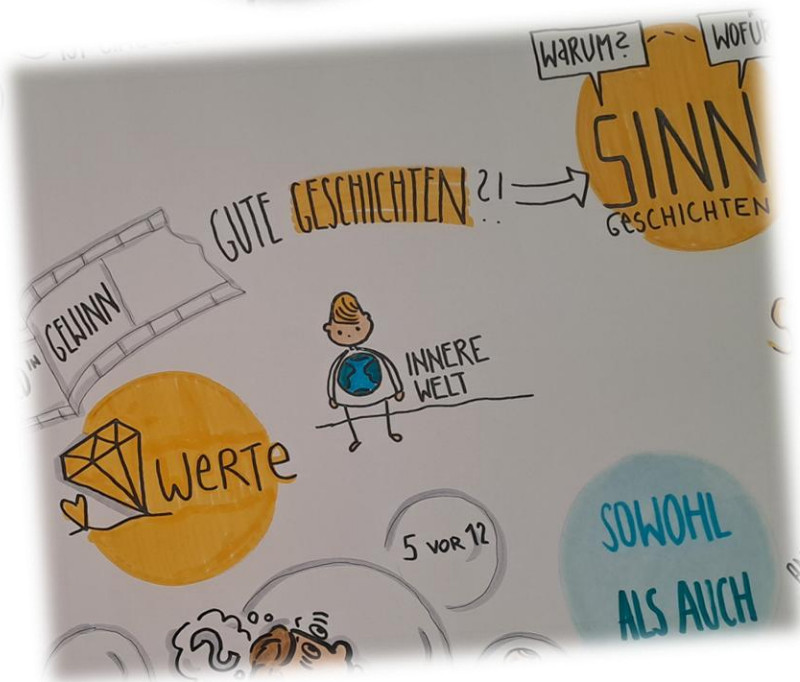 WARUM?
SINN
GESCHICHTEN
GUTE GESCHICHTEN?!
GEWINN
INNERE
WELT
WERTE
5 VOR 12
SOWOHL
ALS AUCH